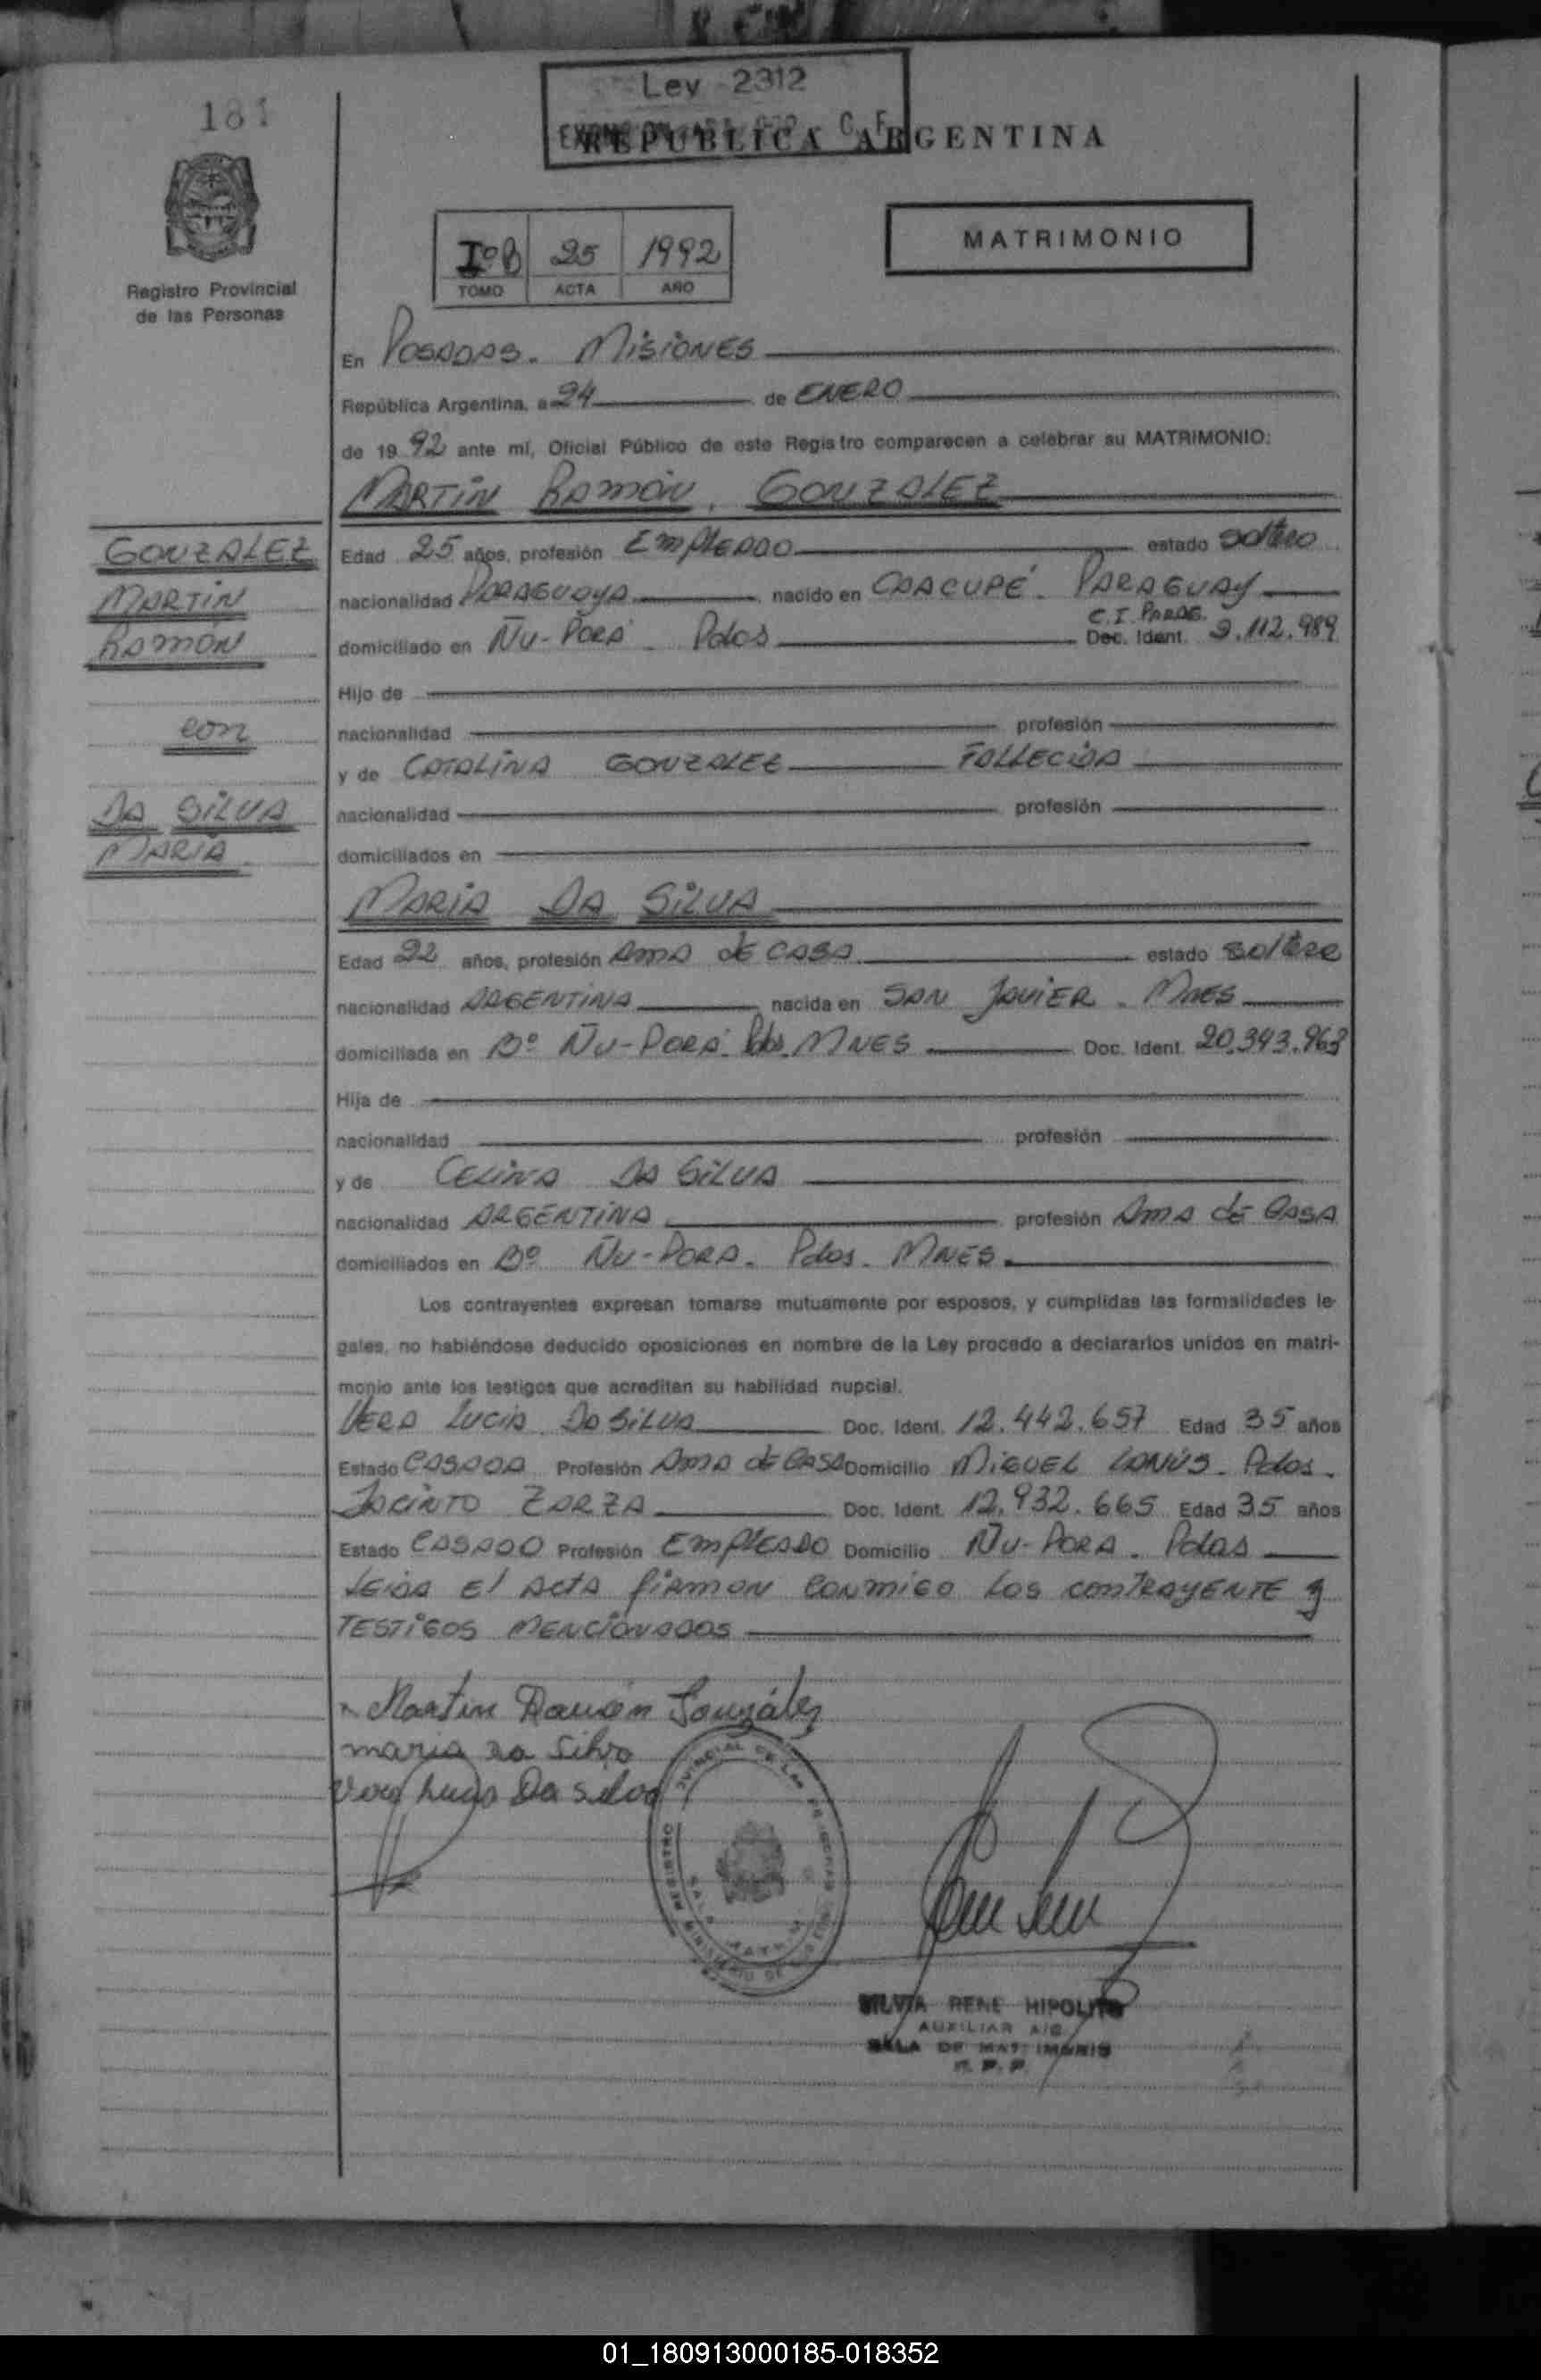 181
Ley 2312
REPUBLICA ARGENTINA
Iº B 25 1992
TOMO ACTA AÑO
MATRIMONIO
Registro Provincial
de las Personas
En POSADAS. MISIONES
República Argentina, a 24 de ENERO
de 19 92 ante mí, Oficial Público de este Registro comparecen a celebrar su MATRIMONIO:
MARTIN RAMÓN. GONZALEZ
GONZALEZ
MARTIN
RAMÓN
con
DA SILVA
MARIA
Edad 25 años, profesión EMPLEADO estado soltero
nacionalidad PARAGUAYA nacido en CAACUPÉ. PARAGUAY
C.I. PARAG.
domiciliado en ÑU-PORÁ. Pdas Doc. Ident. 2.112.989
Hijo de
nacionalidad profesión
y de CATALINA GONZALEZ FALLECIDA
nacionalidad profesión
domiciliados en
MARIA DA SILVA
Edad 22 años, profesión AMA de CASA estado soltera
nacionalidad ARGENTINA nacida en SAN JAVIER. MNES
domiciliada en Bº ÑU-PORÁ. Pdas. MNES Doc. Ident. 20.343.963
Hija de
nacionalidad profesión
y de CELINA DA SILVA
nacionalidad ARGENTINA profesión AMA de CASA
domiciliados en Bº ÑU-PORA. Pdas. MNES.
Los contrayentes expresan tomarse mutuamente por esposos, y cumplidas las formalidades le-
gales, no habiéndose deducido oposiciones en nombre de la Ley procedo a declararlos unidos en matri-
monio ante los testigos que acreditan su habilidad nupcial.
VERA LUCIA DA SILVA Doc. Ident. 12.442.657 Edad 35 años
Estado CASADA Profesión AMA de CASA Domicilio MIGUEL LANÚS. Pdas.
JACINTO ZARZA Doc. Ident. 12.932.665 Edad 35 años
Estado CASADO Profesión EMPLEADO Domicilio ÑU-PORA. Pdas
LEIDA El ACTA fiRMAN CONMIGO LOS CONTRAYENTE y
TESTIGOS MENCIONADOS
Martin Ramón González
maria Da Silva
Vera Lucia Da Silva
SILVIA RENE HIPOLITO
AUXILIAR A/C
SALA DE MATRIMONIO
R. P. P.
01_180913000185-018352